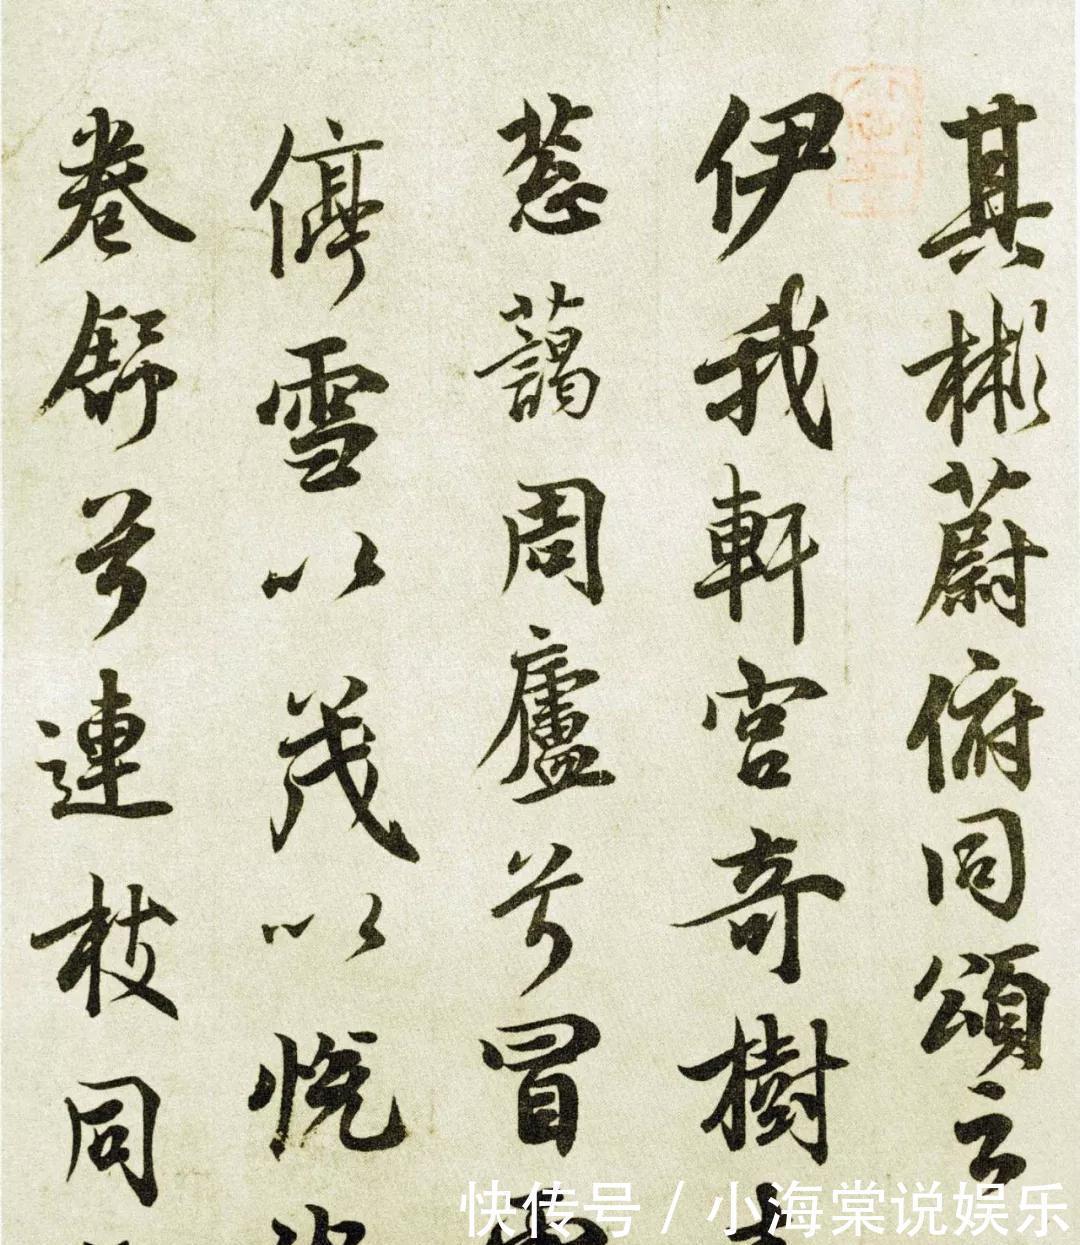 其彬蔚俯同頌云
伊我軒宮奇樹
葱藹周廬兮冒
停雪以茂以悦
卷舒兮連枝同
快传号 / 小海棠说娱乐